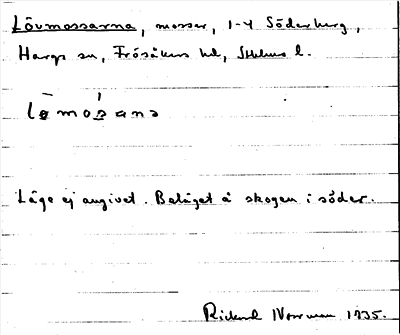 Lövmossarna, mosser, 1-4 Söderberg,
Hargs sn, Frösåkers hd, Sthlms l.
Läge ej angivet. Beläget å skogen i söder.
Rickard Norrman 1935.